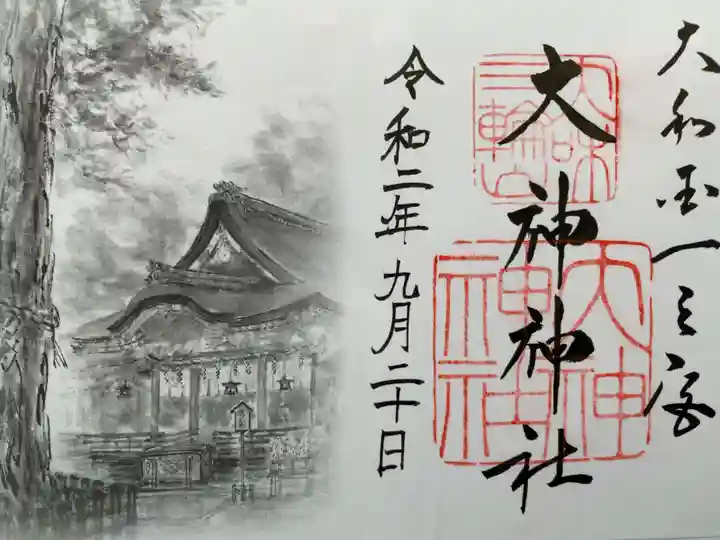 大和国一之宮
大神神社
令和二年九月二十日
三輪山
大神神社